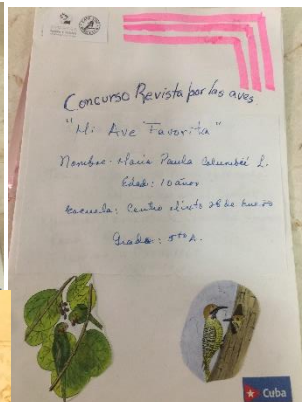 Concurso Revista por las aves
"Mi Ave Favorita"
Nombre: María Paula L.
Edad: 10 años
Escuela: Centro Mixto 26 de
Grado: 5to A.
Cuba